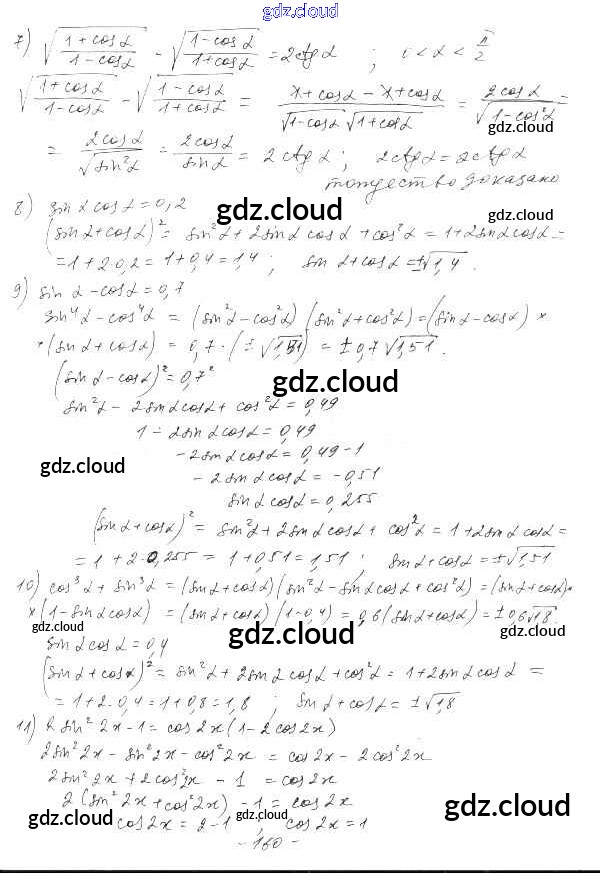 gdz.cloud
7) √(1+cosα)/(1-cosα) - √(1-cosα)/(1+cosα) = 2ctgα ; 0<α<π/2
√(1+cosα)/(1-cosα) - √(1-cosα)/(1+cosα) = (1+cosα-1+cosα)/(√1-cosα √1+cosα) = 2cosα/√1-cos²α =
gdz.cloud
= 2cosα/√sin²α = 2cosα/sinα = 2ctgα ; 2ctgα = 2ctgα
gdz.cloud
тождество доказано
8) sinα cosα = 0,2
gdz.cloud
(sinα+cosα)² = sin²α + 2sinα cosα + cos²α = 1+2sinα cosα =
= 1+2·0,2 = 1+0,4 = 1,4 ; sinα+cosα = ±√1,4.
gdz.cloud
9) sinα - cosα = 0,7
sin⁴α - cos⁴α = (sin²α - cos²α)(sin²α + cos²α) = (sinα - cosα) ×
× (sinα + cosα) = 0,7·(±√1,51) = ±0,7√1,51.
(sinα - cosα)² = 0,7²
gdz.cloud
sin²α - 2sinα cosα + cos²α = 0,49
1 - 2sinα cosα = 0,49
-2sinα cosα = 0,49-1
gdz.cloud
gdz.cloud
-2sinα cosα = -0,51
sinα cosα = 0,255
(sinα+cosα)² = sin²α + 2sinα cosα + cos²α = 1+2sinα cosα =
gdz.cloud
= 1+2·0,255 = 1+0,51 = 1,51 ; sinα+cosα = ±√1,51
10) cos³α + sin³α = (sinα+cosα)(sin²α - sinα cosα + cos²α) = (sinα+cosα)·
× (1-sinα cosα) = (sinα+cosα)(1-0,4) = 0,6(sinα+cosα) = ±0,6√1,8.
gdz.cloud
gdz.cloud
gdz.cloud
sinα cosα = 0,4
(sinα+cosα)² = sin²α + 2sinα cosα + cos²α = 1+2sinα cosα =
gdz.cloud
= 1+2·0,4 = 1+0,8 = 1,8 ; sinα+cosα = ±√1,8
11) 2sin²2x - 1 = cos2x(1-2cos2x)
2sin²2x - sin²2x - cos²2x = cos2x - 2cos²2x
2sin²2x + 2cos²2x - 1 = cos2x
2(sin²2x + cos²2x) - 1 = cos2x
gdz.cloud
gdz.cloud
gdz.cloud
cos2x = 2-1 ; cos2x = 1
- 160 -